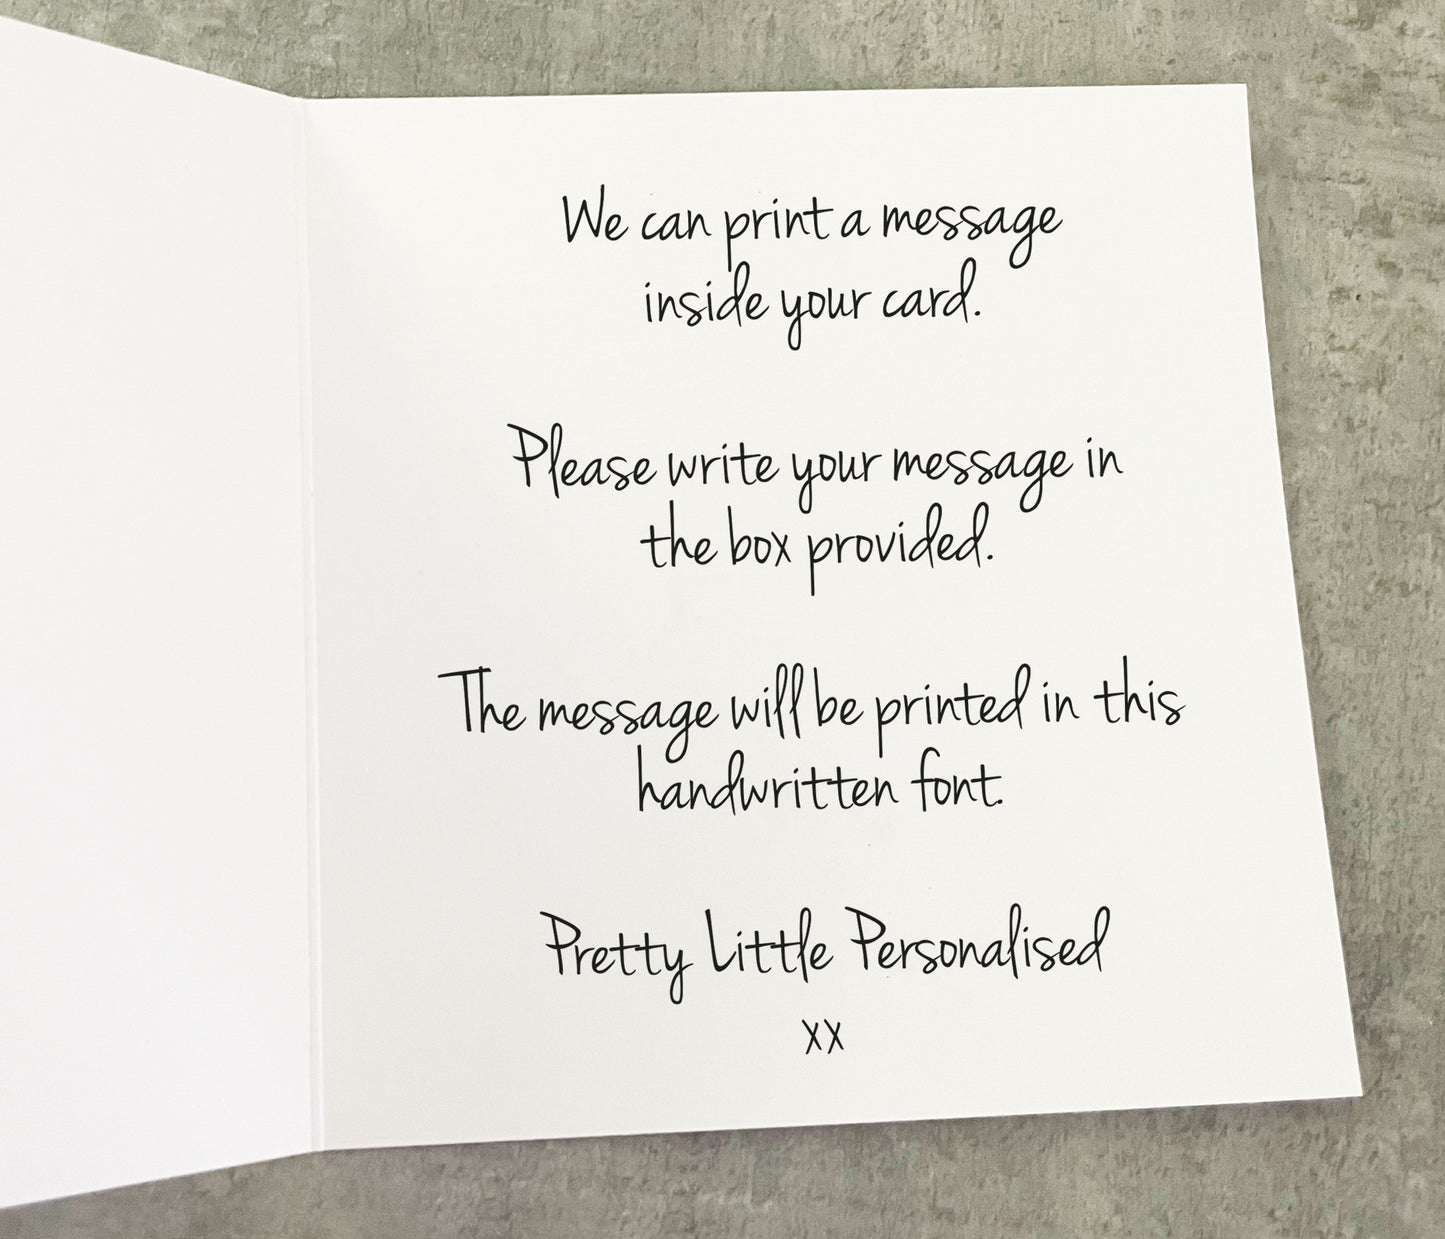 We can print a message
inside your card.
Please write your message in
the box provided.
The message will be printed in this
handwritten font.
Pretty Little Personalised
xx